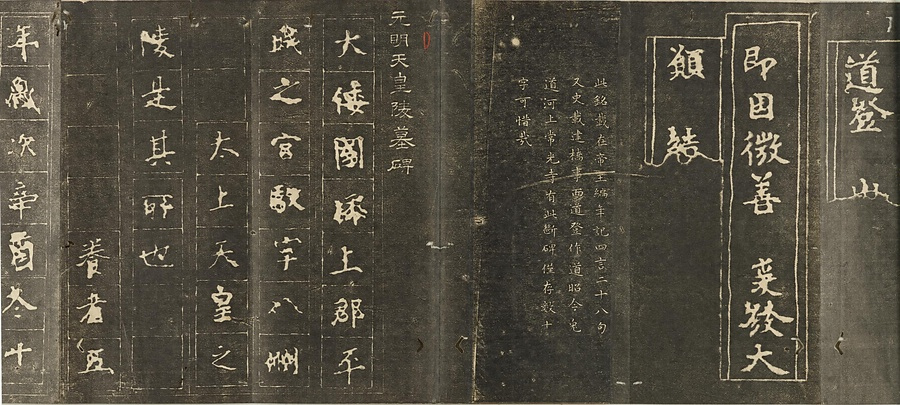 道登 出
即因微善 爰發大
願 結
此銘載在帝王編年記四言二十八句
又史載建橋事而道登作道昭今兔
道河上常光寺有此断碑僅存數十
字可惜哉
元明天皇陵墓碑
大倭國添上郡平
城之宮馭宇八洲
太上天皇之
陵是其所也
養老五
年歲次辛酉冬十